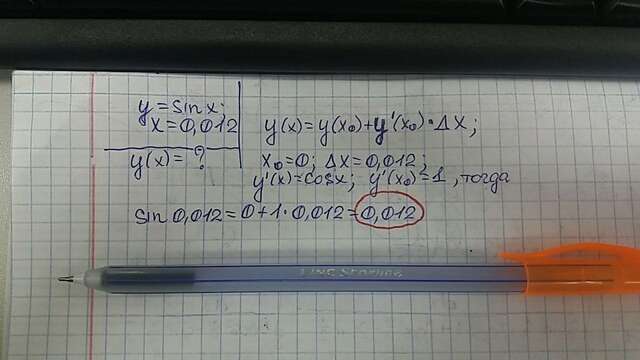 y = sin x;
x = 0,012
y(x) = ?
y(x) = y(x₀) + y'(x₀) · Δx;
x₀ = 0; Δx = 0,012;
y'(x) = cosx; y'(x₀) = 1, тогда
sin 0,012 = 0 + 1 · 0,012 = 0,012